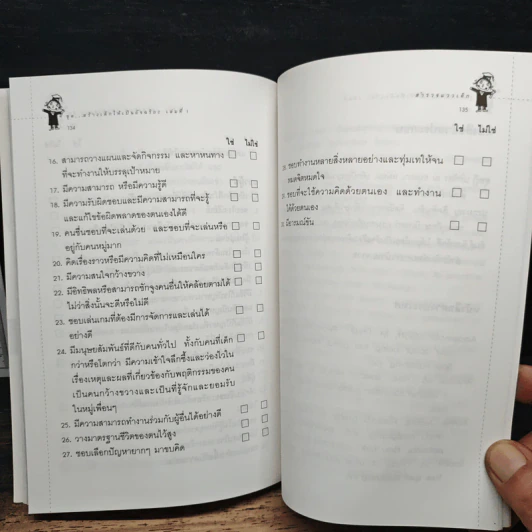 ชุด...สร้างเด็กให้เป็นอัจฉริยะ เล่มที่ 1
134
ใช่ ไม่ใช่
16. สามารถวางแผนและจัดกิจกรรม และหาหนทาง
ที่จะทำงานให้บรรลุเป้าหมาย
17. มีความสามารถ หรือมีความรู้ดี
18. มีความรับผิดชอบและมีความสามารถที่จะรู้
และแก้ไขข้อผิดพลาดของตนเองได้ดี
19. คนอื่นชอบที่จะเล่นด้วย และชอบที่จะเล่นหรือ
อยู่กับคนหมู่มาก
20. คิดเรื่องราวหรือมีความคิดที่ไม่เหมือนใคร
21. มีความสนใจกว้างขวาง
22. มีอิทธิพลหรือสามารถชักจูงคนอื่นให้คล้อยตามได้
ไม่ว่าสิ่งนั้นจะดีหรือไม่ดี
23. ชอบเล่นเกมที่ต้องมีการจัดการและเล่นได้
อย่างดี
24. มีมนุษยสัมพันธ์ที่ดีกับคนทั่วไป ทั้งกับคนที่เด็ก
กว่าหรือโตกว่า มีความเข้าใจลึกซึ้งและว่องไวใน
เรื่องเหตุและผลที่เกี่ยวข้องกับพฤติกรรมของคน
เป็นคนกว้างขวางและเป็นที่รู้จักและยอมรับ
ในหมู่เพื่อนๆ
25. มีความสามารถทำงานร่วมกับผู้อื่นได้อย่างดี
26. วางมาตรฐานชีวิตของตนไว้สูง
27. ชอบเลือกปัญหายากๆ มาขบคิด
ใช่ ไม่ใช่
ชอบทำงานหลายสิ่งหลายอย่างและทุ่มเทให้จน
หมดจิตหมดใจ
ชอบที่จะใช้ความคิดด้วยตนเอง และทำงาน
ได้ด้วยตนเอง
มีอารมณ์ขัน